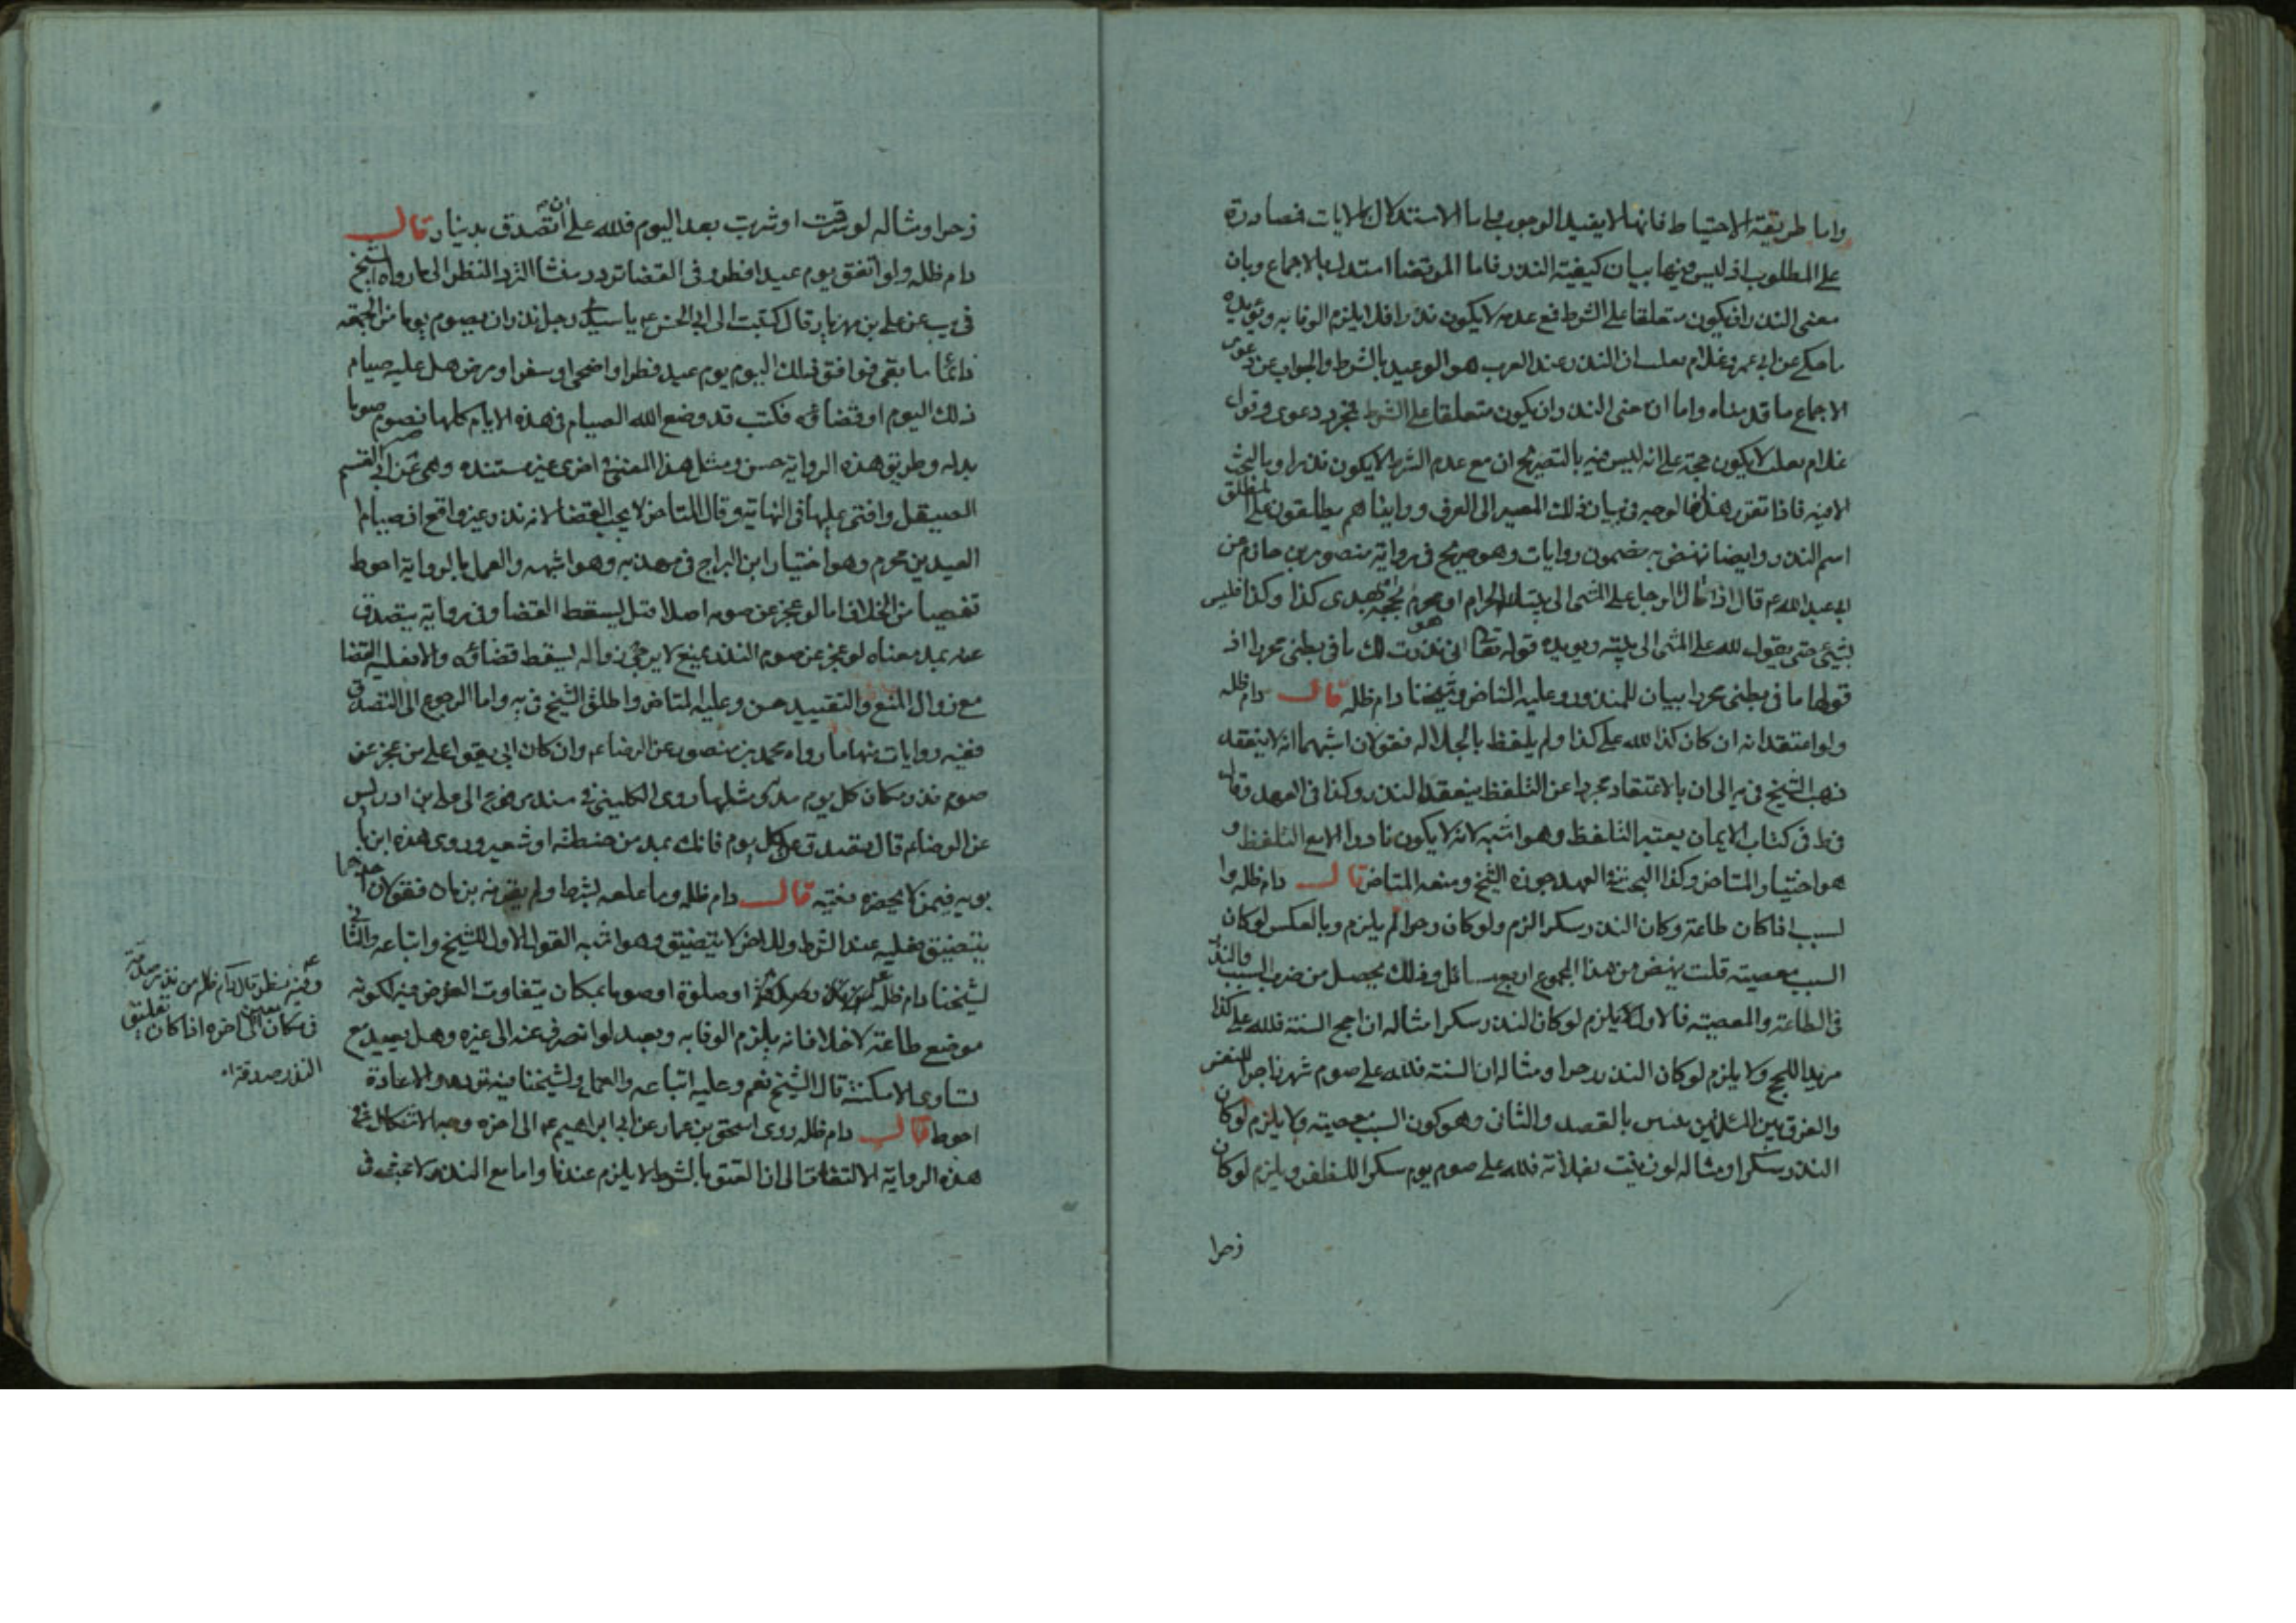 واما طريقة الاحتياط فانها لا يفيد الوجوب واما الاستدلال بالايات فمصادرة
على المطلوب اذ ليس فيها بيان كيفية النذر فاما المرتضا استدل بالاجماع وبان
معنى النذر ان يكون متعلقا على الشرط فمع عدمه لا يكون نذرا فلا يلزم الوفا به ويؤيده
ما حكى عن ابي عمرو غلام ثعلب ان النذر عند العرب هو الوعيد بالشرط والجواب عن دعوى
الاجماع ما قدمناه واما ان معنى النذر ان يكون متعلقا على الشرط مجرد دعوى وقول
غلام ثعلب لا يكون حجة على انه ليس فيه بالتصريح ان مع عدم الشرط لا يكون نذرا وبالبحث
فاذا تقرر هذا فالوجه في بيان ذلك المصير الى العرف ورايناهم يطلقون على المطلق
اسم النذر وايضا نهض به مضمون روايات وهو صريح في رواية منصور بن حازم عن
ابي عبد الله ع قال اذا قال الرجل على المشي الى بيت الله الحرام او هو محرم بحجة هدى كذا وكذا فليس
بشئ حتى يقول لله على المشي الى بيته ويويده قوله تعا انى نذرت لك ما في بطنى محررا اذ
قولها ما في بطنى محررا بيان للمنذور وعليه المتاخر وشيخنا دام ظله قال دام ظله
ولو اعتقد انه ان كان كذا لله على كذا ولم يلفظ بالجلاله فقولان اشبههما انه لا ينعقد
ذهب الشيخ في يه الى ان بالاعتقاد مجردا عن التلفظ ينعقد النذر وكذا في العهد وقال
في ط في كتاب الايمان يعتبر التلفظ وهو اشبه لانه لا يكون ناذرا الا مع التلفظ و
هو اختيار المتاخر وكذا البحث في العهد جوزه الشيخ ومنعه المتاخر قال دام ظله وا
لسبب اذا كان طاعة وكان النذر سكرا لزم ولو كان زجرا لم يلزم وبالعكس لو كان
السبب معصيته قلت ينهض من هذا المجموع اربع مسائل وذلك يحصل من ضرب السبب والنذر
في الطاعة والمعصية فالاول يلزم لو كان النذر سكرا مثاله ان احج السنة فلله على كذا
مريدا للحج ولا يلزم لو كان النذر زجرا ومثاله ان السنة فلله على صوم شهر زاجرا للنفس
والفرق بين المسئلتين بالقصد والثانى وهو كون السبب معصيته ولا يلزم لو كان
النذر سكرا ومثاله لو زنيت بفلانة فلله على صوم يوم سكرا للظفر ويلزم لو كان
زجرا
زجرا ومثاله لو سرقت او شربت بعد اليوم فلله على ان اتصدق بدينار قال
دام ظله ولو اتفق يوم عيد افطر وفى القضا تردد منشا التردد النظر الى ما رواه الشيخ
في يب عن على بن مهزيار قال كتبت الى ابي الحسن ع يا سيدى رجل نذر ان يصوم يوما من الجمعه
دائما ما بقى فوافق ذلك اليوم يوم عيد فطر او اضحى او سفر او مرض هل عليه صيام
ذلك اليوم او قضاؤه فكتب قد وضع الله الصيام في هذه الايام كلها نصوم صوما
بدله وطريق هذه الرواية حسن ومثل هذا المعنى في اخرى غير مستنده وهى عن ابي القسم
الصيقل وافتى عليها في النهاية وقال المتاخر لا يجب القضا لانه نذر غير واقع اذ صيام
العيدين محرم وهو اختيار ابن البراج في مهذبه وهو اشبه والعمل بالرواية احوط
تفصيا من الخلاف اما لو عجز عن صومه اصلا قيل يسقط القضا وفي رواية يتصدق
عنه بمد معناه لو عجز عن صوم النذر بمنع لا يرجى زواله يسقط قضاؤه والا فعليه القضا
مع زوال المنع والتقييد حسن وعليه المتاخر واطلق الشيخ في يه واما الرجوع الى التصدق
ففيه روايات منها ما رواه محمد بن منصور عن الرضا ع وان كان ابي يقول على من عجز عن
صوم نذر مكان كل يوم مد ومثلها روى الكليني في سند مرفوع الى على بن ادريس
عن الرضا ع قال يتصدق عن كل يوم فاتك بمد من حنطة او شعير وروى هذه ابن با
بويه فيمن لا يحضره الفقيه قال دام ظله وما علقه بشرط ولم يقرنه بزمان فقولان احدهما
يتضيق فعليه عند الشرط والاخر لا يتضيق وهو اشبه القول الاول للشيخ واتباعه والثاني
لشيخنا دام ظله او صلوة او صوما بمكان يتفاوت الغرض فيه لكونه
موضع طاعة لا خلاف انه يلزم الوفا به ويعيد لو انصرف عنه الى غيره وهل يعيد مع
تساوى الامكنة قال الشيخ نعم وعليه اتباعه والعمل ولشيخنا فيه تردد والاعادة
احوط قال دام ظله روى اسحق بن عمار عن ابي ابراهيم ع الى اخره وجه الاشكال في
هذه الرواية الالتفات الى ان العتق بالشرط لا يلزم عندنا واما مع النذر فلا
وفيه نظر قال دام ظله من نذر صدقة
في مكان معين الى اخره اذا كان تعليق
النذر صدقة